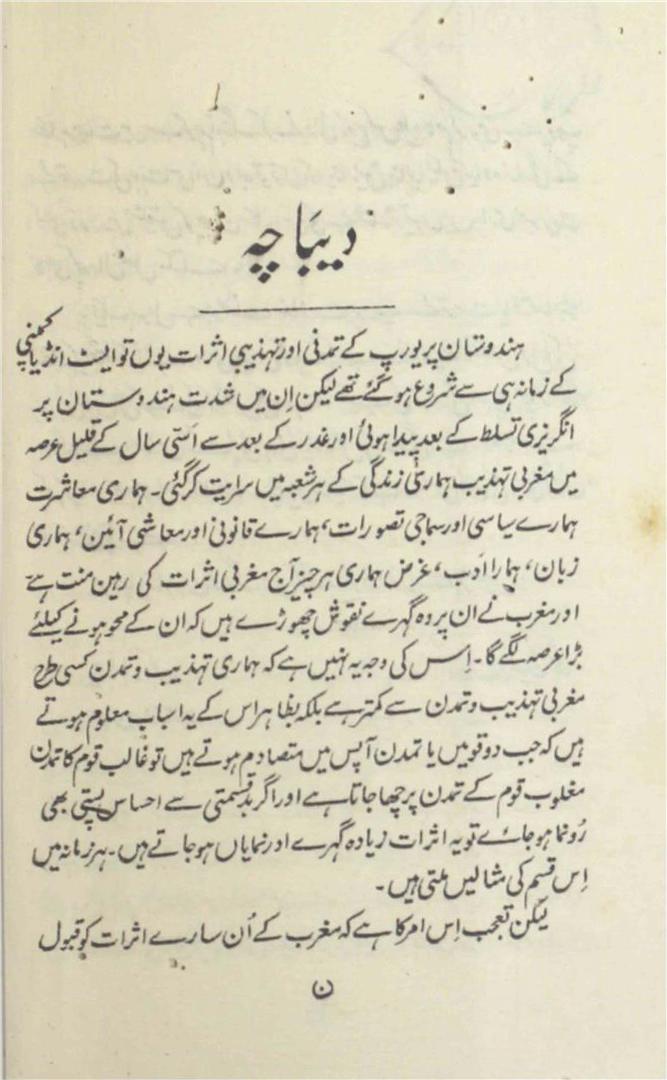 دیباچہ
ہندوستان پر یورپ کے تمدنی اور تہذیبی اثرات یوں تو ایسٹ انڈیا کمپنی
کے زمانہ ہی سے شروع ہو گئے تھے لیکن اِن میں شدت ہندوستان پر
انگریزی تسلط کے بعد پیدا ہوئی اور غدر کے بعد سے اسّی سال کے قلیل عرصہ
میں مغربی تہذیب ہماری زندگی کے ہر شعبہ میں سرایت کر گئی۔ ہماری معاشرت
ہمارے سیاسی اور سماجی تصورات، ہمارے قانونی اور معاشی آئین، ہماری
زبان، ہمارا ادب، غرض ہماری ہر چیز آج مغربی اثرات کی رہین منت ہے
اور مغرب نے ان پر وہ گہرے نقوش چھوڑے ہیں کہ ان کے محو ہونے کیلئے
بڑا عرصہ لگے گا۔ اِس کی وجہ یہ نہیں ہے کہ ہماری تہذیب و تمدن کسی طرح
مغربی تہذیب و تمدن سے کمتر ہے بلکہ بظاہر اس کے یہ اسباب معلوم ہوتے
ہیں کہ جب دو قومیں یا تمدن آپس میں متصادم ہوتے ہیں تو غالب قوم کا تمدن
مغلوب قوم کے تمدن پر چھا جاتا ہے اور اگر بدقسمتی سے احساس پستی بھی
رُونما ہو جائے تو یہ اثرات زیادہ گہرے اور نمایاں ہو جاتے ہیں۔ ہر زمانہ میں
اِس قسم کی مثالیں ملتی ہیں۔
لیکن تعجب اِس امر کا ہے کہ مغرب کے اُن سارے اثرات کو قبول
ن